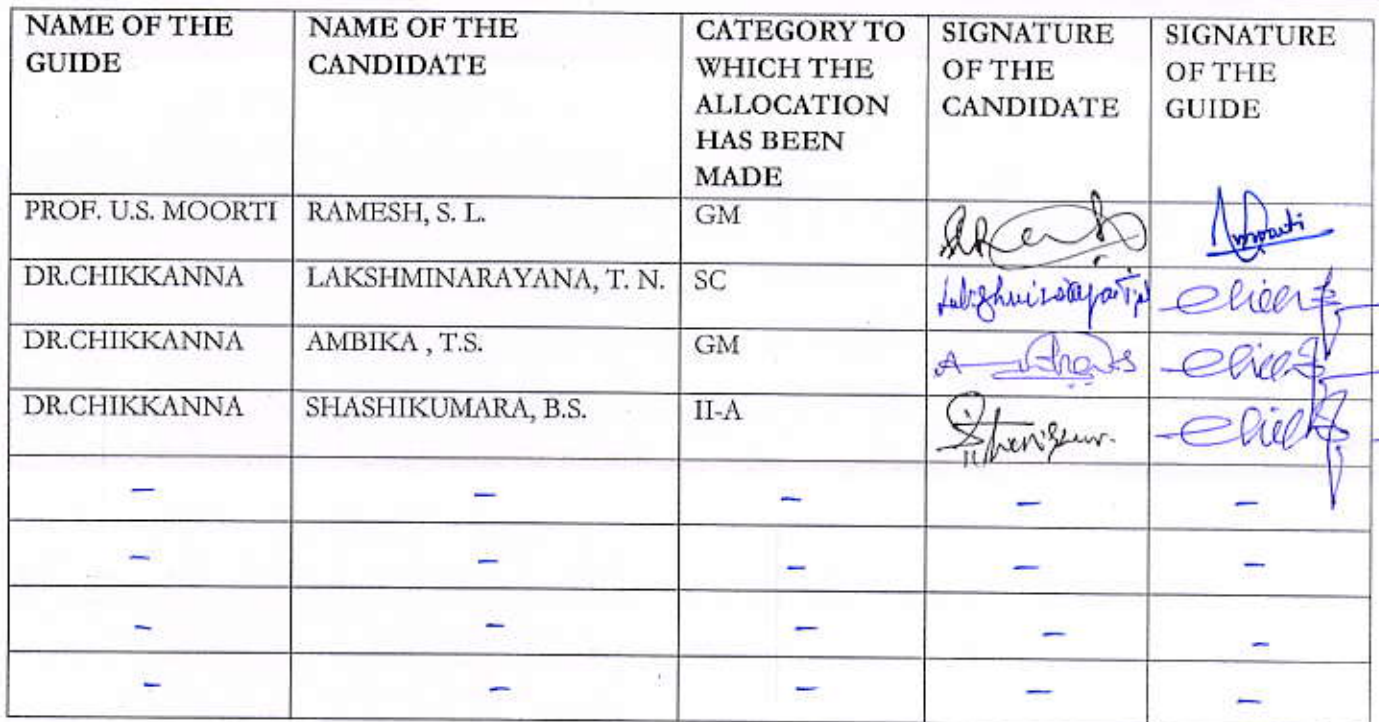 NAME OF THE GUIDE | NAME OF THE CANDIDATE | CATEGORY TO WHICH THE ALLOCATION HAS BEEN MADE | SIGNATURE OF THE CANDIDATE | SIGNATURE OF THE GUIDE
PROF. U.S. MOORTI | RAMESH, S. L. | GM
DR.CHIKKANNA | LAKSHMINARAYANA, T. N. | SC
DR.CHIKKANNA | AMBIKA , T.S. | GM
DR.CHIKKANNA | SHASHIKUMARA, B.S. | II-A
– | – | – | – | –
– | – | – | – | –
– | – | – | – | –
– | – | – | – | –